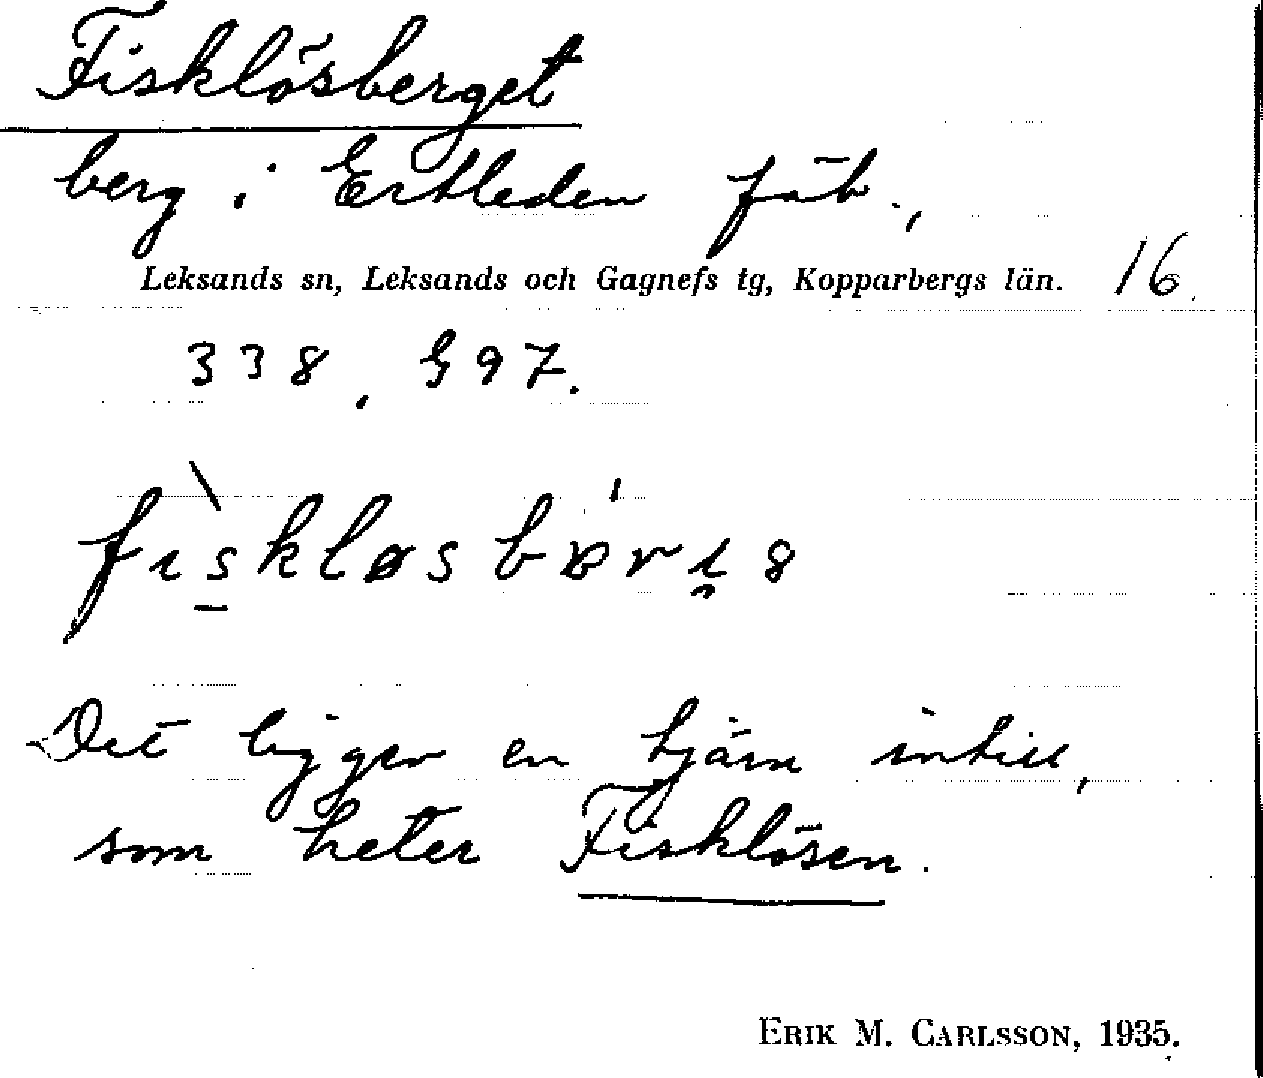 Fisklösberget
berg i Ertleden fäb.,
Leksands sn, Leksands och Gagnefs tg, Kopparbergs län. 16
338. G 97.
Det ligger en tjärn intill,
som heter Fisklösen.
ERIK M. CARLSSON, 1935.